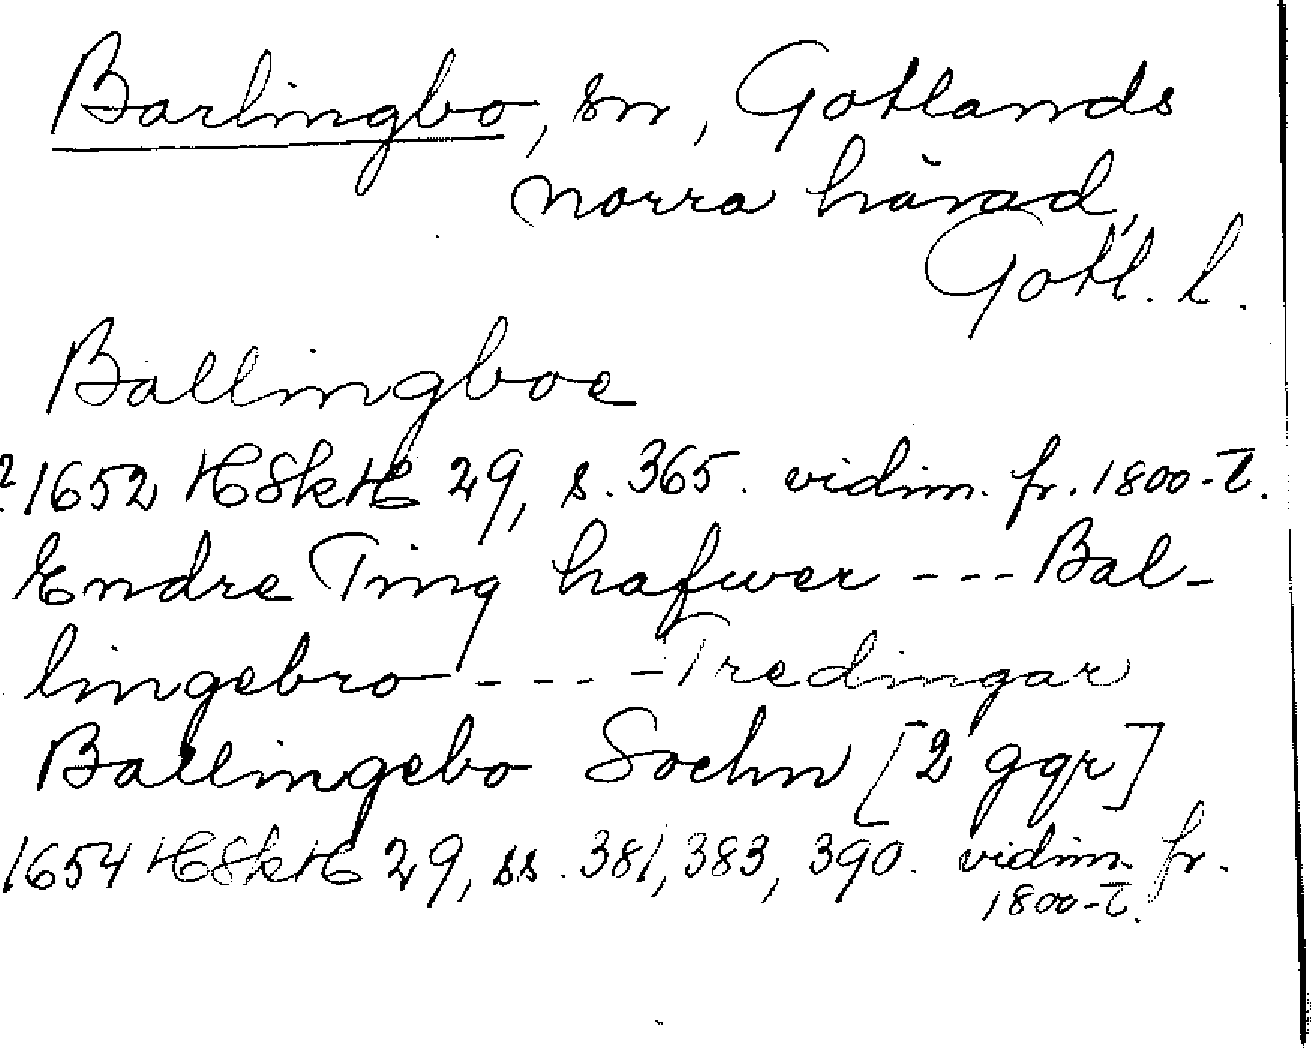 Barlingbo, sn, Gotlands
norra härad,
Gotl. l.
Ballingboe
1652 HSkH 29, s. 365. vidim. fr. 1800-t.
Endre Ting hafwer --- Bal-
lingebro ---- Tredingar
Ballingebo Sochn [2 ggr]
1654 HSkH 29, ss. 381, 383, 390. vidim. fr.
1800-t.